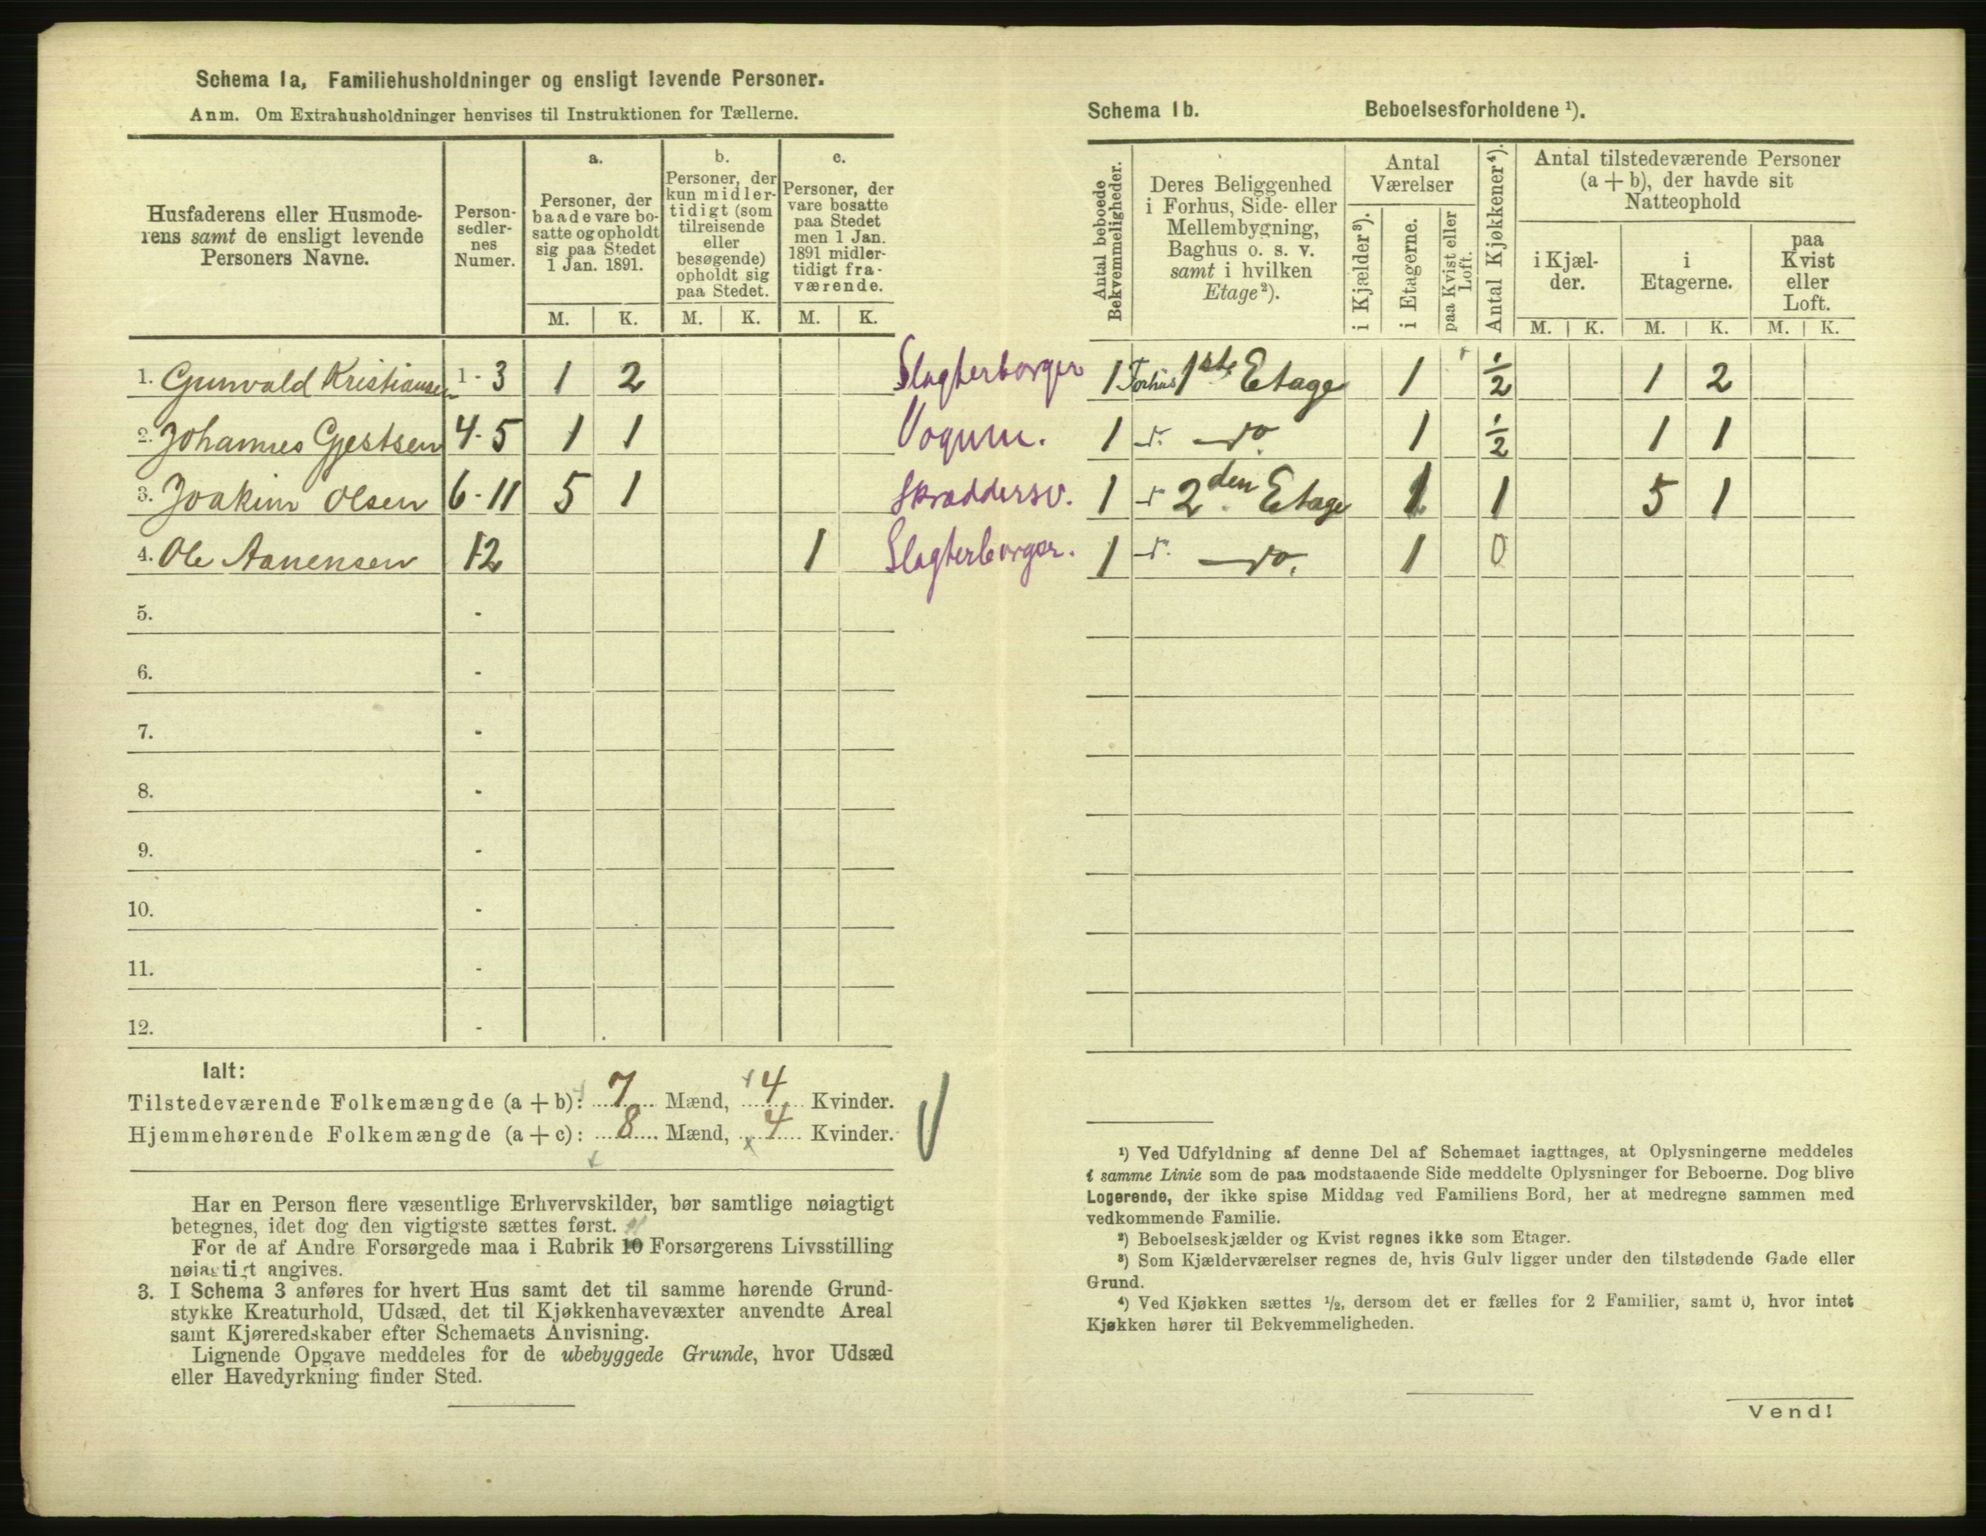 Schema 1a, Familiehusholdninger og ensligt levende Personer.
Anm. Om Extrahusholdninger henvises til Instruktionen for Tællerne.
Husfaderens eller Husmode-
rens samt de ensligt levende
Personers Navne.
Person-
sedler-
nes
Numer.
a.
Personer, der
baade vare bo-
satte og opholdt
sig paa Stedet
1 Jan. 1891.
b.
Personer, der
kun midler-
tidigt (som
tilreisende
eller
besøgende)
opholdt sig
paa Stedet.
c.
Personer, der
vare bosatte
paa Stedet
men 1 Jan.
1891 midler-
tidigt fra-
værende.
M. K. M. K. M. K.
1. Gunvald Kristiansen 1-3 1 2
2. Johannes Gjertsen 4-5 1 1
3. Joakim Olsen 6-11 5 1
4. Ole Aanensen 12 1
5. -
6. -
7. -
8. -
9. -
10. -
11. -
12. -
Ialt:
Tilstedeværende Folkemængde (a + b): 7 Mænd, 4 Kvinder.
Hjemmehørende Folkemængde (a + c): 8 Mænd, 4 Kvinder.
Har en Person flere væsentlige Erhvervskilder, bør samtlige nøiagtigt
betegnes, idet dog den vigtigste sættes først.
For de af Andre Forsørgede maa i Rubrik 10 Forsørgerens Livsstilling
nøiagtigt angives.
3. I Schema 3 anføres for hvert Hus samt det til samme hørende Grund-
stykke Kreaturhold, Udsæd, det til Kjøkkenhavevæxter anvendte Areal
samt Kjøreredskaber efter Schemaets Anvisning.
Lignende Opgave meddeles for de ubebyggede Grunde, hvor Udsæd
eller Havedyrkning finder Sted.
Schema 1b. Beboelsesforholdene ¹).
Antal beboede
Bekvemmeligheder.
Deres Beliggenhed
i Forhus, Side- eller
Mellembygning,
Baghus o. s. v.
samt i hvilken
Etage²).
Antal
Værelser
i Kjælder³).
i Etagerne.
paa Kvist eller
Loft.
Antal Kjøkkener⁴).
Antal tilstedeværende Personer
(a + b), der havde sit
Natteophold
i Kjæl-
der.
i
Etagerne.
paa
Kvist
eller
Loft.
M. K. M. K. M. K.
Slagterborger 1 Forhus 1ste Etage 1 ½ 1 2
1 do. 1 ½ 1 1
Skræddersv. 1 2den Etage 1 1 5 1
Slagterborger. 1 do. 1 0
¹) Ved Udfyldning af denne Del af Schemaet iagttages, at Oplysningerne meddeles
i samme Linie som de paa modstaaende Side meddelte Oplysninger for Beboerne. Dog blive
Logerende, der ikke spise Middag ved Familiens Bord, her at medregne sammen med
vedkommende Familie.
²) Beboelseskjælder og Kvist regnes ikke som Etager.
³) Som Kjælderværelser regnes de, hvis Gulv ligger under den tilstødende Gade eller
Grund.
⁴) Ved Kjøkken sættes ½, dersom det er fælles for 2 Familier, samt 0, hvor intet
Kjøkken hører til Bekvemmeligheden.
Vend!